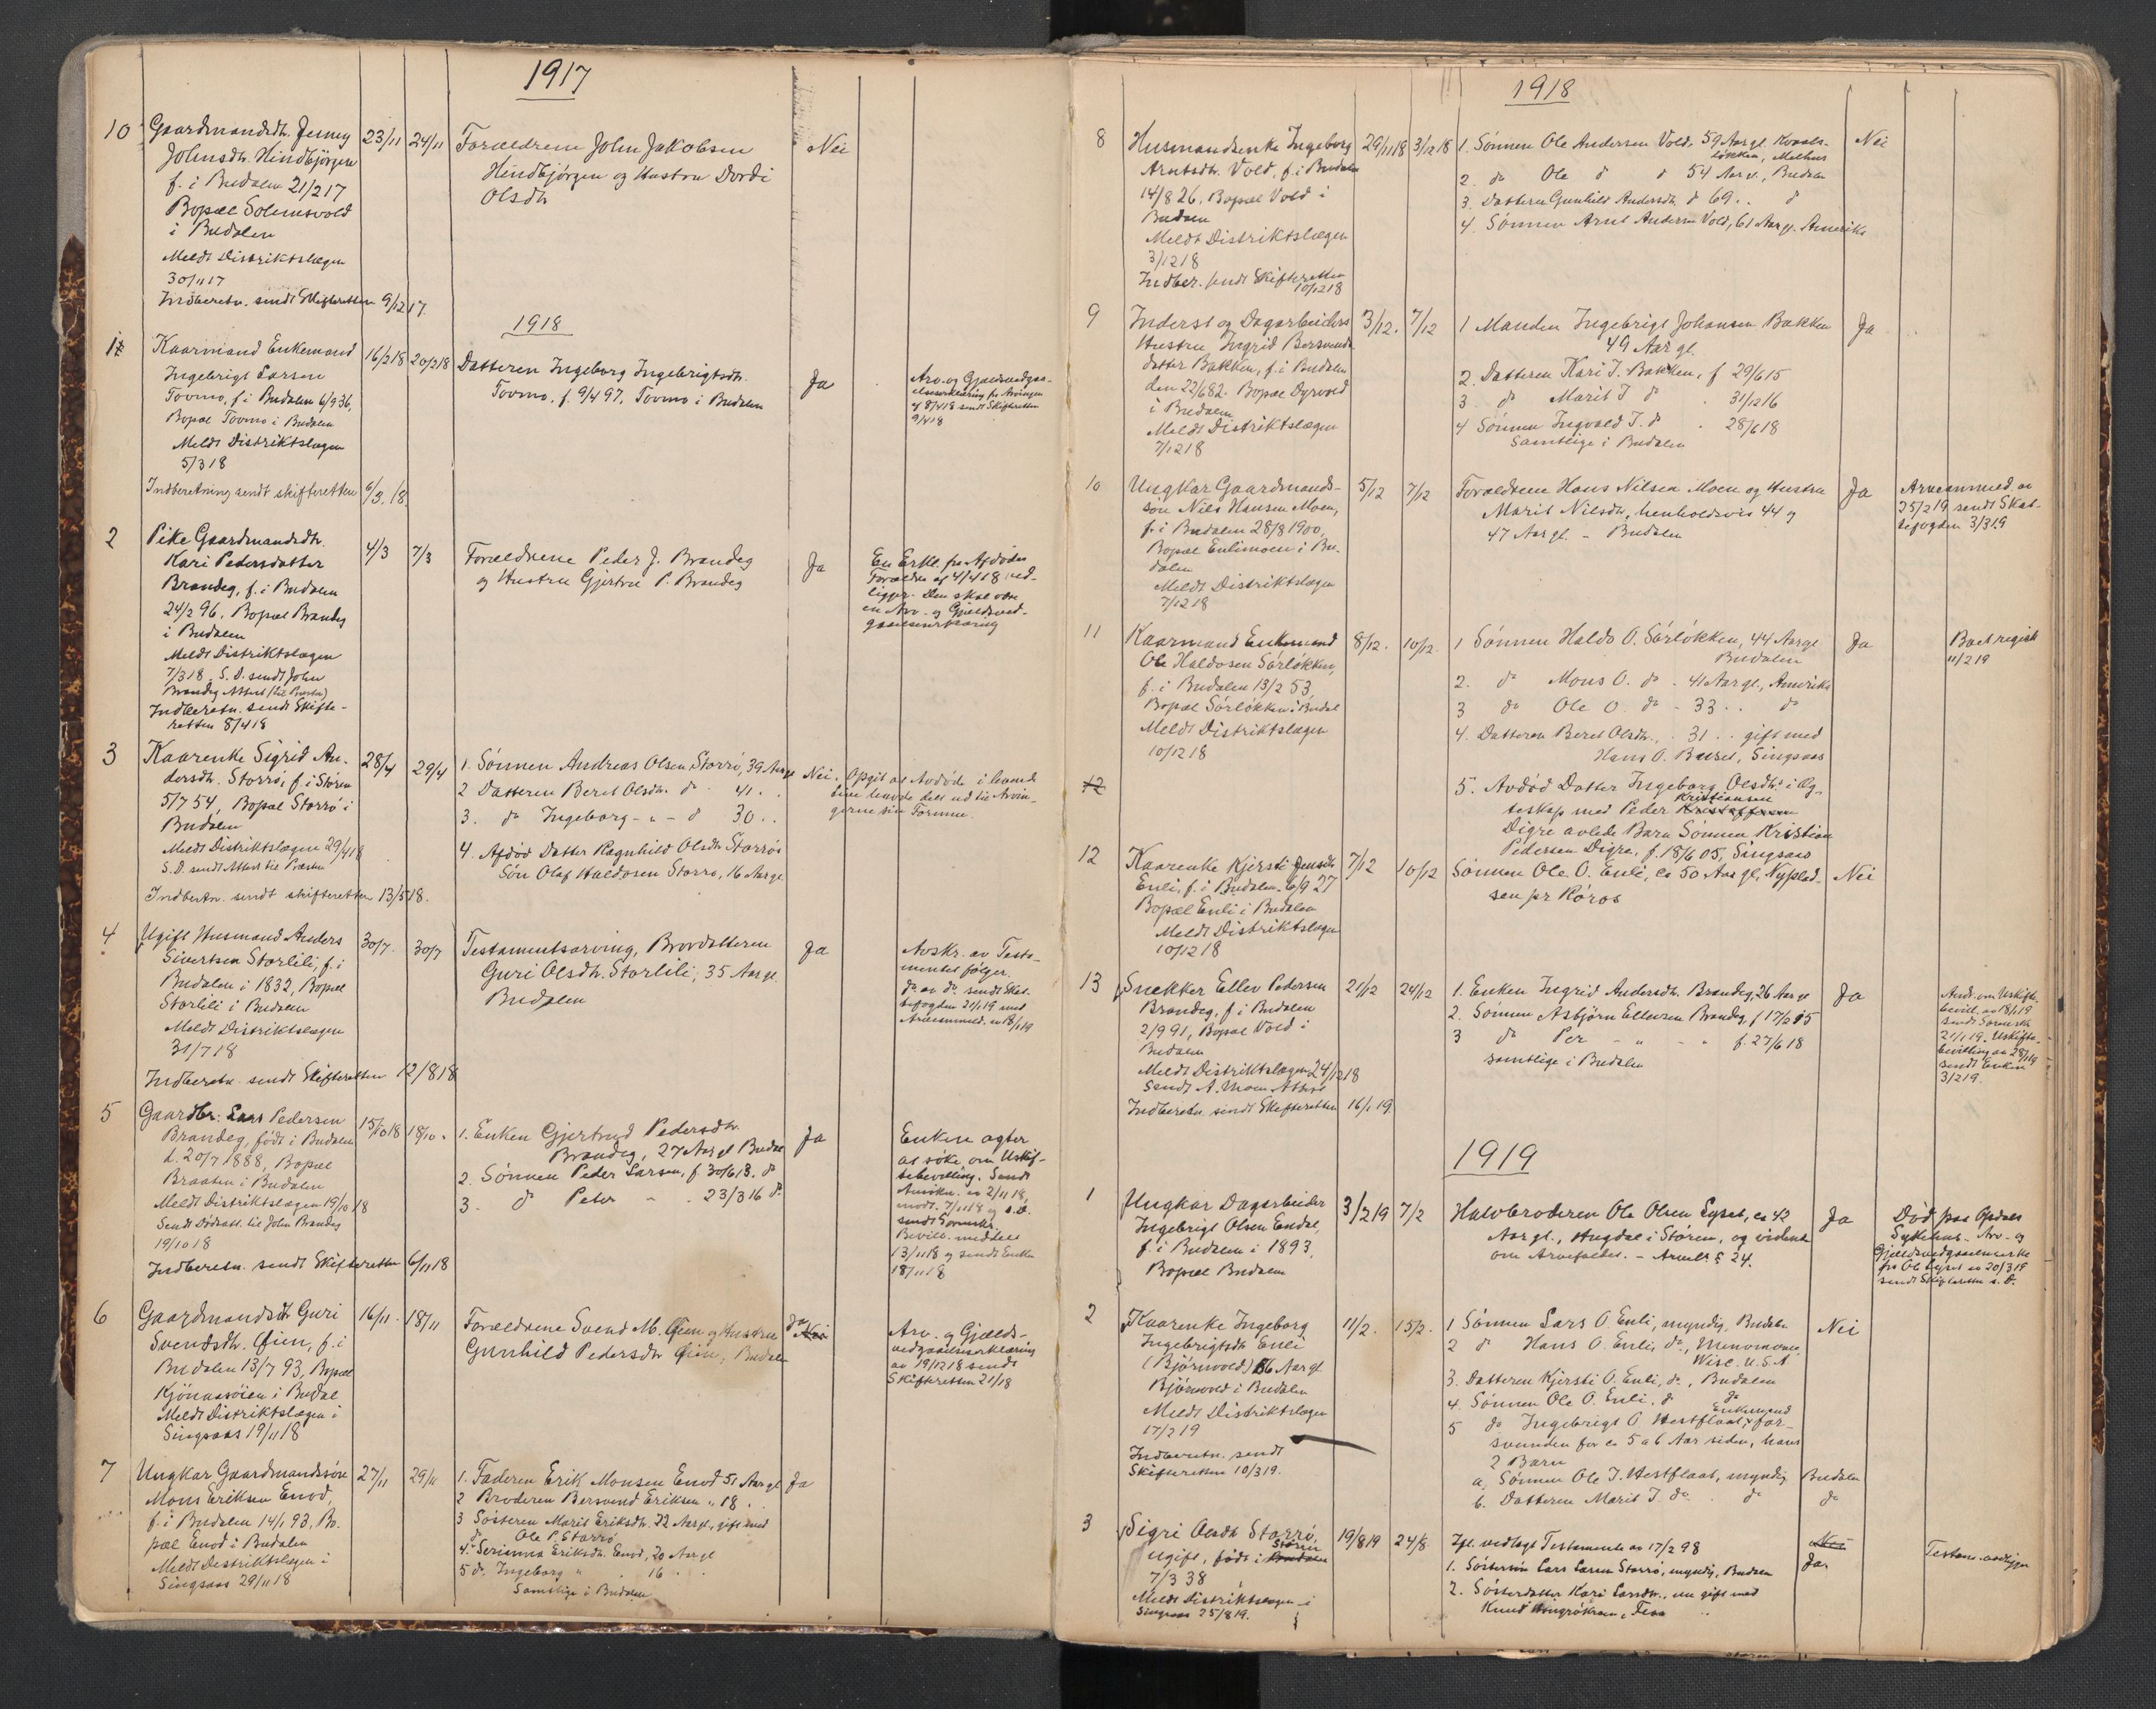 1917
10 Gaardmandsdtr. Jenny 23/11 24/11 Forældrene John Jakobsen Nei
Johnsdtr. Hindbjörgen Hindbjörgen og Hustru Dordi
f. i Budalen 21/2 17 Olsdtr
Bopæl Solemsvold
i Budalen
Meldt Distriktslægen
30/11 17
Indberetn. sendt Skifteretten 9/12 17.
1918
1 Kaarmand Enkemand 16/2 18 20/2 18 Datteren Ingeborg Ingebrigtsdtr. Ja Arv. og Gjældsvedgaa-
Ingebrigt Larsen Tovmo, f. 9/4 97, Tovmo i Budalen elseserklæring fr. Arvingen
Tovmo, f. i Budalen 6/9 36, af 8/4 18 sendt Skifteretten
Bopæl Tovmo i Budalen 9/4 18
Meldt Distriktslægen
5/3 18
Indberetning sendt skifteretten 6/3. 18.
2 Pike Gaardmandsdtr. 4/3 7/3 Forældrene Peder J. Brandeg Ja En Erkl. fra Afdödes
Kari Pedersdatter og Hustru Gjertru P. Brandeg Forældre af 4/4 18 ved-
Brandeg, f. i Budalen ligger. Den skal være
24/2 96, Bopæl Brandeg en Arv. og Gjældsved-
i Budalen gaaelseserklæring
Meldt Distriktslægen
7/3 18. S. D. sendt John
Brandeg Attest (til Presten)
Indberetn. sendt Skifte-
retten 8/4 18
3 Kaarenke Sigrid An- 28/4 29/4 1. Sönnen Andreas Olsen Storrö, 39 Aar gl Nei. Opgit at Avdöde i levende
dersdtr. Storrö, f. i Stören 2 Datteren Beret Olsdtr. do 41 . . live havde delt ud til Arvin-
5/7 54, Bopæl Storrö i 3. do Ingeborg - " - do 30 . . gerne sin Formue.
Budalen 4. Afdöd Datter Ragnhild Olsdtr Storrös
Meldt Distriktslægen 29/4 18 Sön Olaf Haldosen Storrö, 16 Aar gl.
S. D. sendt Attest til Præsten
Indberetn. sendt skifteretten 13/5 18.
4 Ugift Husmand Anders 30/7. 30/7 Testamentsarving, Brordatteren Ja Avskr. av Testa-
Sivertsen Storlili, f. i Guri Olsdtr. Storlili, 35 Aar gl. mentet følger.
Budalen i 1832, Bopæl Budalen do av do sendt Skat-
Storlili i Budalen tefogden 21/1 19 med
Meldt Distriktslægen Arveanmeld. av 18/1 19
31/7 18
Indberetn. sendt Skifteretten 12/8 18
5 Gaardbr. Lars Pedersen 15/10 18 18/10. 1. Enken Gjertrud Pedersdtr. Ja Enken agter
Brandeg, födt i Budalen Brandeg, 27 Aar gl Budal at söke om Uskif-
d. 20/7 1888, Bopæl 2. Sönnen Peder Larsen, f 30/6 13. do tebevilling. Sendt
Braaten i Budalen 3. do Peter " . 23/3 16 do Ansökn. av 2/11 18,
Meldt Distriktslægen 19/10 18 modt. 7/11 18 og s.D.
Sendt Dødsatt. til John Brandeg sendt Sorenskr.
19/10 18 Bevill. meddelt
Indberetn. sendt Skifteretten 6/11 18 13/11 18 og sendt Enken
18/11 18
6 Gaardmandsdtr Guri 16/11. 18/11 Forældrene Svend M. Öien og Hustru Ja Nei Arv. og Gjælds-
Svendsdtr. Öien, f. i Gunhild Pedersdtr Öien, Budalen vedgaaelseserklæring
Budalen 13/7 93, Bopæl av 19/12 18 sendt
Kjönaasöien i Budal Skifteretten 21/18
Meldt Distriktslægen i
Singsaas 19/11 18
7 Ungkar Gaardmandssön 27/11 29/11 1. Faderen Erik Monsen Enod 51 Aar gl Ja
Mons Eriksen Enod, 2 Broderen Bersvend Eriksen " 18 . .
f. i Budalen 14/1 93, Bo- 3 Sösteren Marit Eriksdtr. 22 Aar gl., gift med
pæl Enod i Budalen Ole P. Storrö
Meldt Distriktslægen i 4. do Serianna Eriksdtr. Enod, 20 Aar gl
Singsaas 29/11 18 5 do, Ingeborg " . 16 . .
Samtlige i Budalen
1918
8 Husmandsenke Ingeborg 29/11 18 3/12 18 1. Sönnen Ole Andersen Vold, 59 Aar gl. Kvaals- Nei
Arntsdtr. Vold, f. i Budalen lökken, Melhus
14/8 26, Bopæl Vold i 2. do Ole do do 54 Aar gl., Budalen
Budalen 3. Datteren Gunhild Andersdtr. do 69 . . do
Meldt Distriktslægen 4. Sönnen Arnt Andersen Vold, 61 Aar gl. Amerika
3/12 18
Indber. sendt Skifteretten
10/12 18
9 Inderst og Dagarbeiders 3/12. 7/12 1 Manden Ingebrigt Johansen Bakken Ja
Hustru Ingrid Bersvends- 49 Aar gl.
datter Bakken, f. i Budalen 2. Datteren Kari I. Bakken, f 29/6 15
den 22/6 82. Bopæl Dyrvold 3 do Marit I do . 31/12 16
i Budalen 4 Sönnen Ingvald I. do . 28/6 18
Meldt Distriktslægen Samtlige i Budalen
7/12 18
10 Ungkar Gaardmands- 5/12 7/12 Forældrene Hans Nilsen Moen og Hustru Ja Arveanmeld. av
sön Nils Hansen Moen, Marit Nilsdtr, henholdsvis 44 og 25/2 19 sendt Skat-
f. i Budalen 28/8 1900, 47 Aar gl. - Budalen tefogden 3/3 19
Bopæl Enlimoen i Bu-
dalen
Meldt Distriktslægen
7/12 18
11 Kaarmand Enkemand 8/12. 10/12. 1 Sönnen Haldo O. Sörlökken, 44 Aar gl Ja Boet registr
Ole Haldosen Sörlökken, Budalen 11/2 19
f. i Budalen 13/2 53 2. do Mons O. do . 41 Aar gl., Amerika
Bopæl Sörlökken i Budal 3 do Ole O. do - 33 . . do
Meldt Distriktslægen 4. Datteren Beret Olsdtr., . 31 . . gift med
10/12 18 Hans O. , Singsaas
12 5. Avdöd Datter Ingeborg Olsdtr. i Æg-
teskap med Peder Kristoffersen Kristiansen
Digre avlede Barn Sönnen Kristian
Pedersen Digre, f. 18/6 05, Singsaas
12 Kaarenke Kjersti Jensdtr 7/12 10/12 Sönnen Ole O. Enli, ca 50 Aar gl, Nyplad- Nei
Enli, f. i Budalen 6/9 27 sen pr Röros
Bopæl Enli i Budalen
Meldt Distriktslægen
10/12 18
13 Snekker Ellev Pedersen 21/12 24/12 1. Enken Ingrid Andersdtr. Brandeg, 26 Aar gl Ja Ansk. om Uskifte-
Brandeg, f. i Budalen 2. Sönnen Asbjörn Ellevsen Brandeg, f 17/2 15 bevill. av 18/1 19
2/9 91, Bopæl Vold i 3 do Per - " - " f. 27/6 18 sendt Sorenskr
Budalen samtlige i Budalen 21/1 19. Uskifte-
Meldt Distriktslægen 24/12 18 bevilling av 28/1 19
Sendt A. Moen Attest sendt Enken
Indberetn. sendt Skifteretten 16/1 19. 3/2 19.
1919
1 Ungkar Dagarbeider 3/2 19 7/2 Halvbroderen Ole Olsen Lyset, ca 42 Ja Död paa Opdals
Ingebrigt Olsen Endal, Aar gl., Hugdal i Stören, og videnti Sykehus. Arv. og
f. i Budalen i 1893, om Arvefaldet. - Arvel. § 24. Gjældsvedgaaelseserkl.
Bopæl Budalen fra Ole Lyset av 20/3 19
sendt Skifteretten s. D.
2 Kaarenke Ingeborg 11/2. 15/2. 1 Sönnen Lars O. Enli, myndig, Budalen Nei
Ingebrigtsdtr Enli 2 do Hans O. Enli, do, Menomonie,
(Björnvold) 86 Aar gl Wisc. U.S.A
Björnvold i Budalen 3. Datteren Kjersti O. Enli, do, Budalen
Meldt Distriktslægen 4. Sönnen Ole O. Enli, do do
17/2 19 5 do Ingebrigt O. Hestflaat, Enkemand for-
Indberetn. sendt svunden for ca 5 a 6 Aar siden, hans
Skifteretten 10/3 19. 2 Barn
a, Sönnen Ole I. Hestflaat, myndig Budalen
b. Datteren Marit I. do . do do
3 Sigri Olsdtr Storrö, 19/8 19 24/8 Ifl. vedlagt Testamente av 17/2 98 Nei Testam. vedligger
ugift, födt i Budalen Stören 1. Söstersön Lars Larsen Storrö, myndig, Budalen Ja.
7/3 38 2. Sösterdatter Kari Larsdtr., nu gift med
Meldt Distriktslægen i Knud
Singsaas 25/8 19.